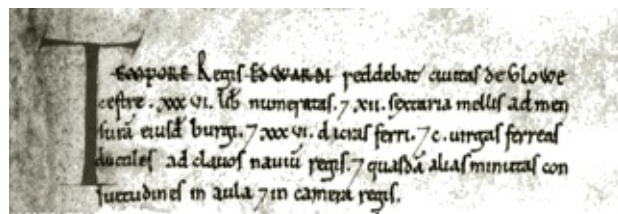 TEMPORE Regis EDWARDI reddebat ciuitas de Glowe
cestre . xxx VI. lib numeratas. ⁊ XII. sextaria mellis ad men
surā eiusd burgi. ⁊ xxx VI. dicras ferri. ⁊ c. uirgas ferreas
ductiles ad clauos nauiū regis. ⁊ quasdā alias minutas con
suetudines in aula ⁊ in camera regis.